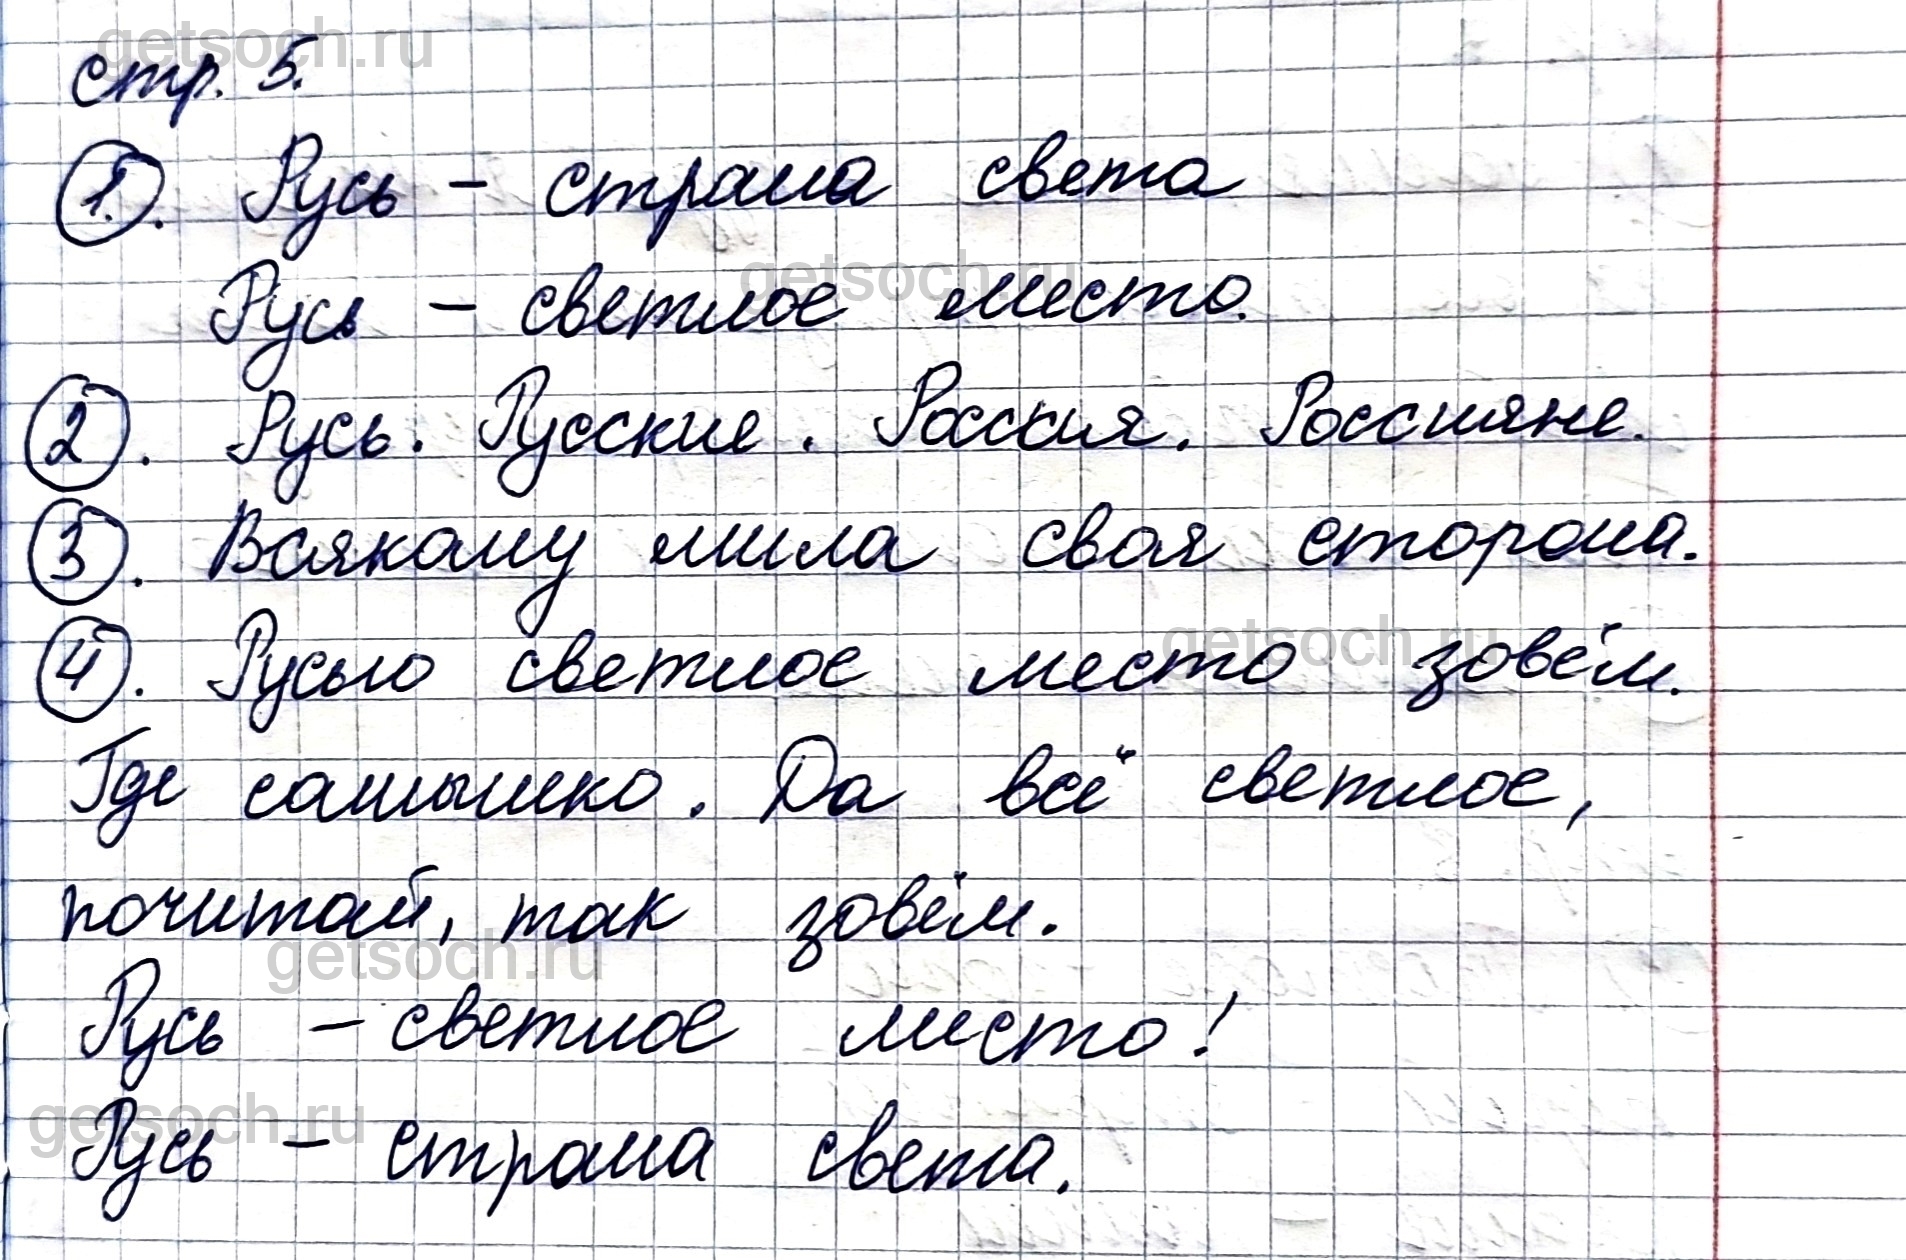 getsoch.ru
стр. 5.
1. Русь – страна света
getsoch.ru
Русь – светлое место.
2. Русь. Русские. Россия. Россияне.
3. Всякому мила своя сторона.
getsoch.ru
4. Русью светлое место зовём.
Где солнышко. Да всё светлое,
почитай, так зовём.
getsoch.ru
Русь – светлое место!
getsoch.ru
Русь – страна света.